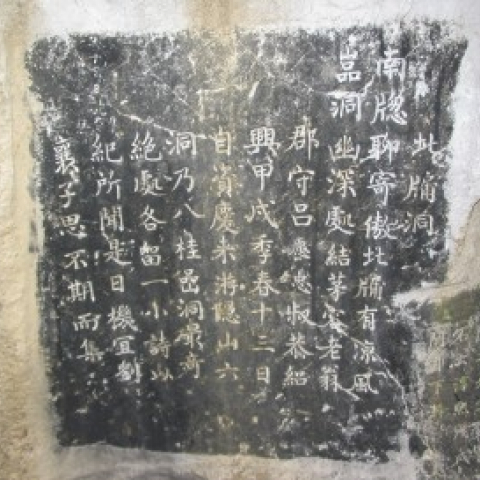 北牖洞
南牎聊寄傲北牖有凉風
嵒洞幽深處結茅容老翁
郡守吕愿忠叔恭紹
興甲戌季春十三日
自資慶來游隱山六
洞乃八桂嵒洞最奇
絶處各留一小詩以
紀所聞是日機宜劉
襄子思不期而集